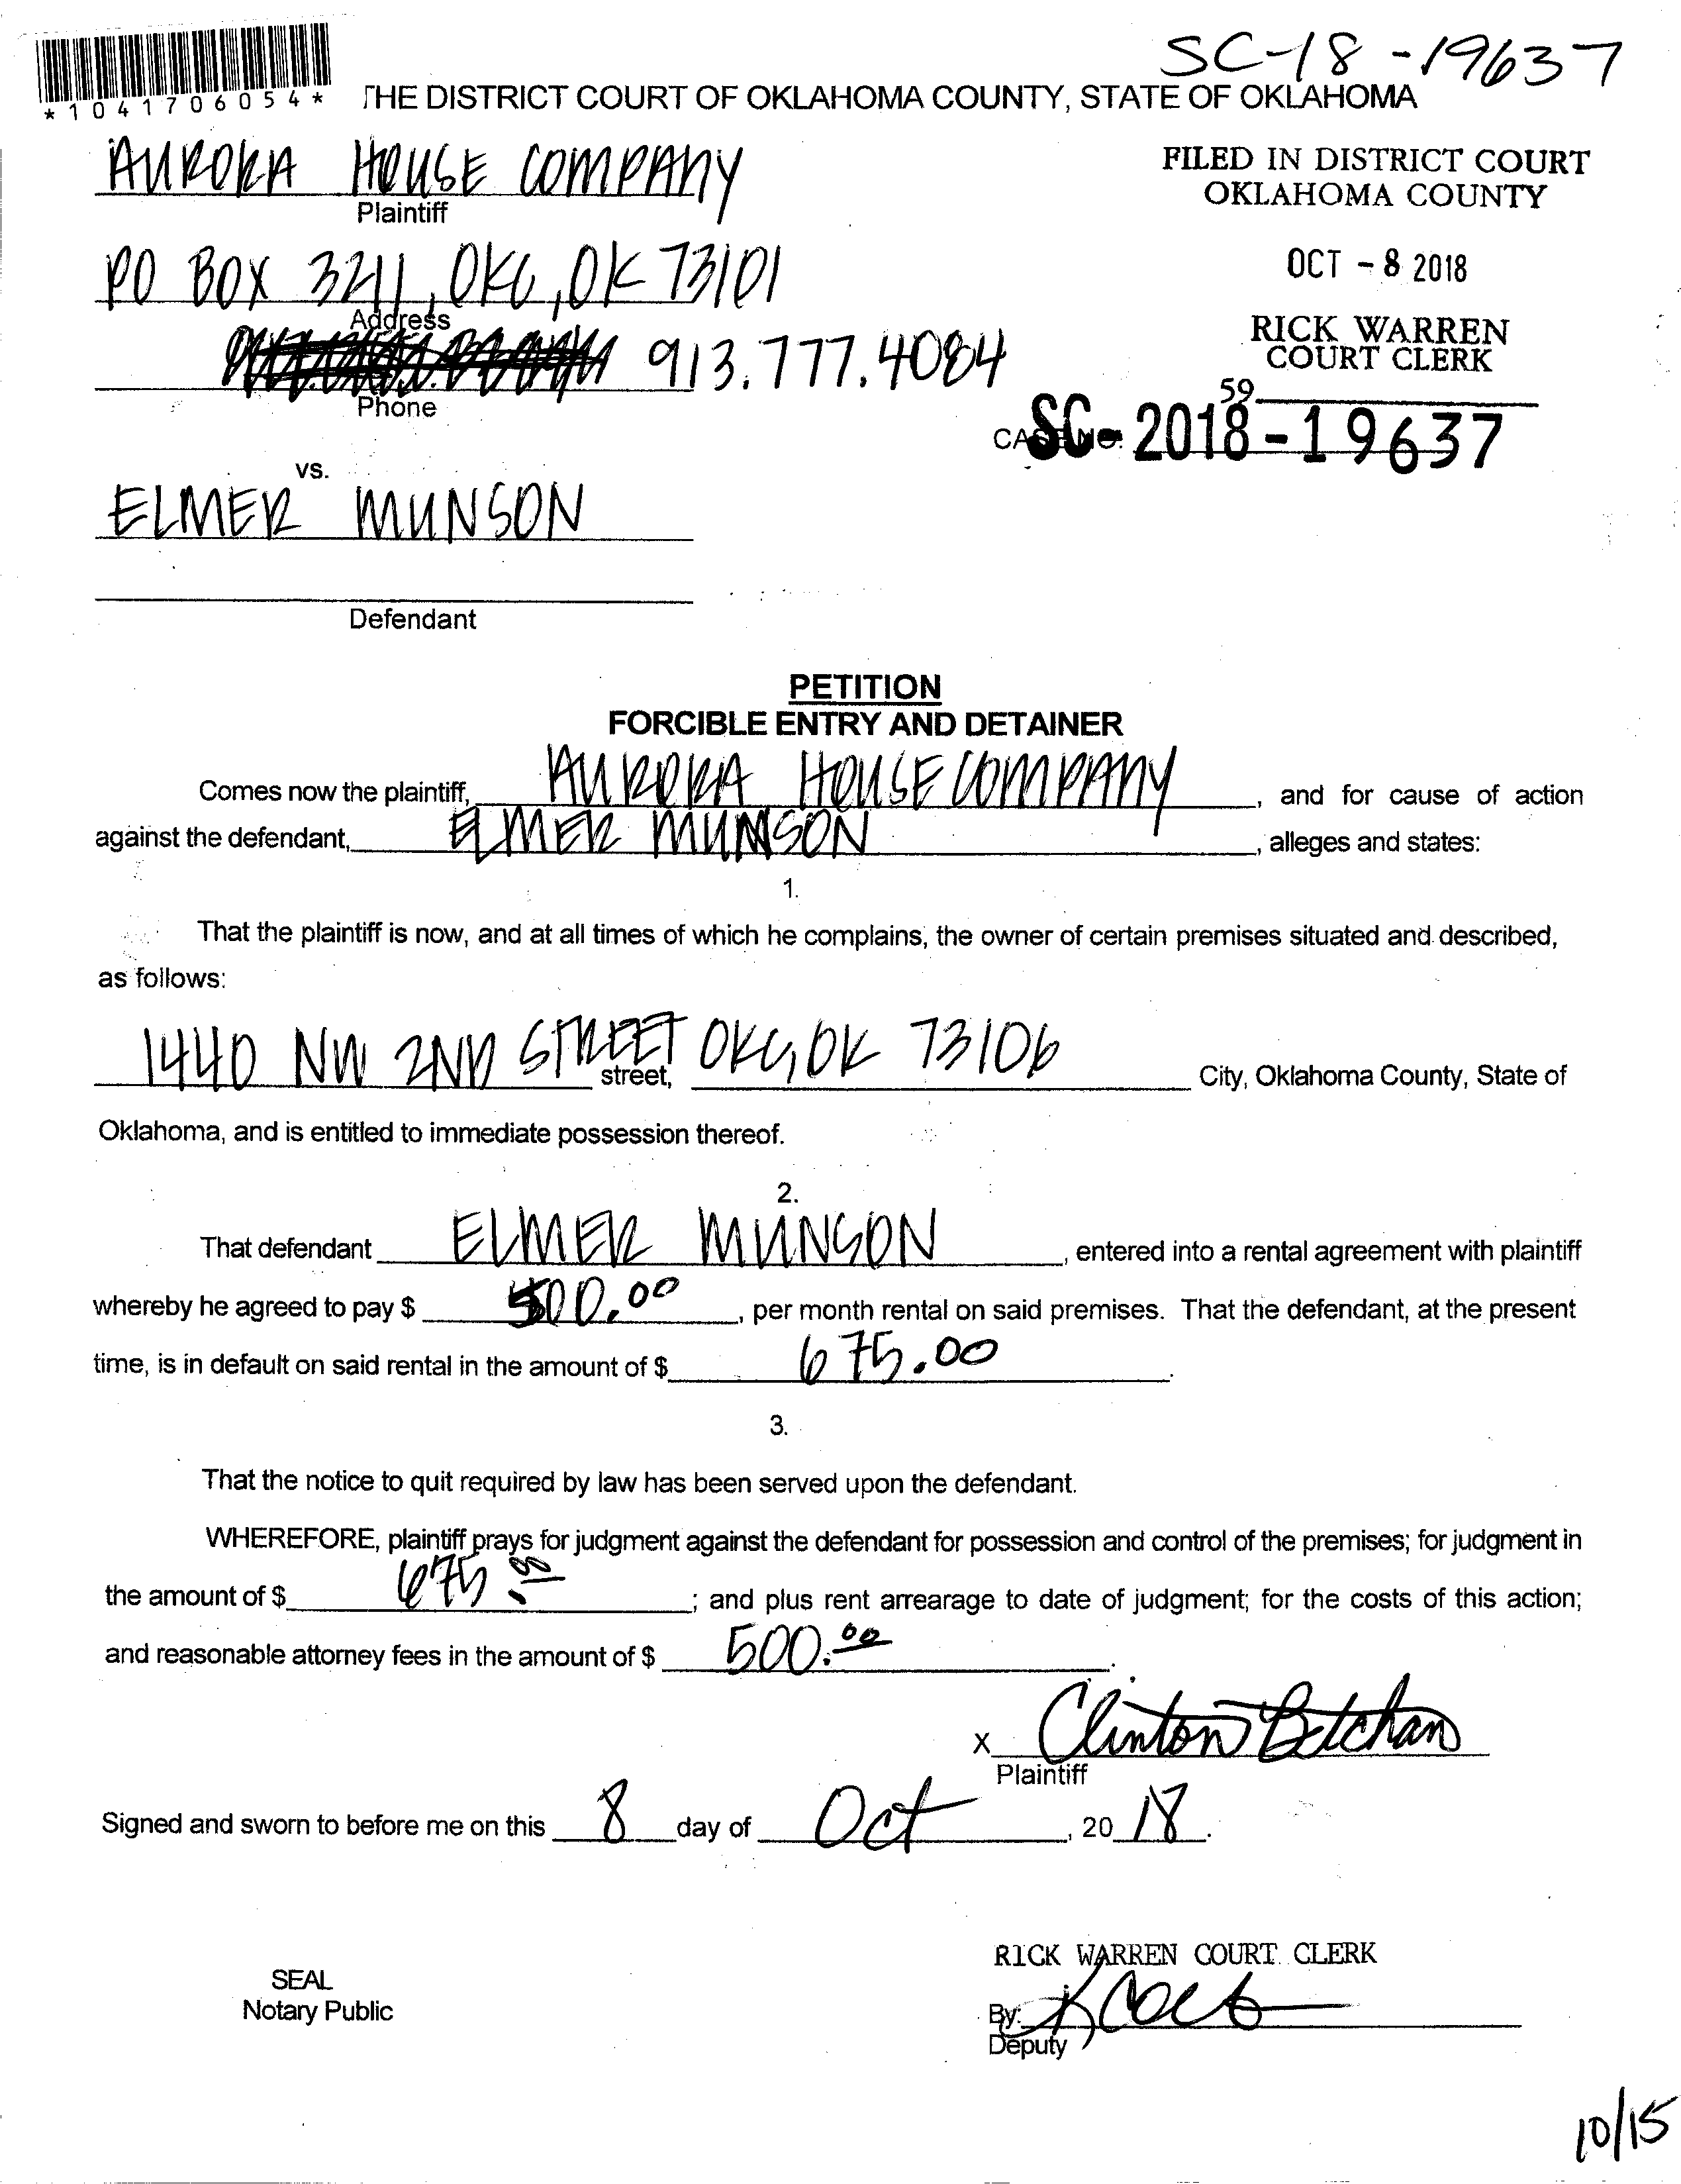 SC-18-19637
*1041706054*
THE DISTRICT COURT OF OKLAHOMA COUNTY, STATE OF OKLAHOMA
AURORA HOUSE COMPANY
Plaintiff
FILED IN DISTRICT COURT
OKLAHOMA COUNTY
PO BOX 3211, OKC, OK 73101
Address
OCT - 8 2018
RICK WARREN
COURT CLERK
913.777.4084
Phone
59
CASE NO. SC-2018-19637
vs.
ELMER MUNSON
Defendant
PETITION
FORCIBLE ENTRY AND DETAINER
Comes now the plaintiff, AURORA HOUSE COMPANY, and for cause of action
against the defendant, ELMER MUNSON, alleges and states:
1.
That the plaintiff is now, and at all times of which he complains, the owner of certain premises situated and described,
as follows:
1440 NW 2ND STREET street, OKC, OK 73106 City, Oklahoma County, State of
Oklahoma, and is entitled to immediate possession thereof.
2.
That defendant ELMER MUNSON, entered into a rental agreement with plaintiff
whereby he agreed to pay $ 500.00, per month rental on said premises. That the defendant, at the present
time, is in default on said rental in the amount of $ 675.00.
3.
That the notice to quit required by law has been served upon the defendant.
WHEREFORE, plaintiff prays for judgment against the defendant for possession and control of the premises; for judgment in
the amount of $ 675.00; and plus rent arrearage to date of judgment; for the costs of this action;
and reasonable attorney fees in the amount of $ 500.00.
X Clinton Betchan
Plaintiff
Signed and sworn to before me on this 8 day of Oct, 20 18.
SEAL
Notary Public
RICK WARREN COURT CLERK
By:
Deputy
10/15